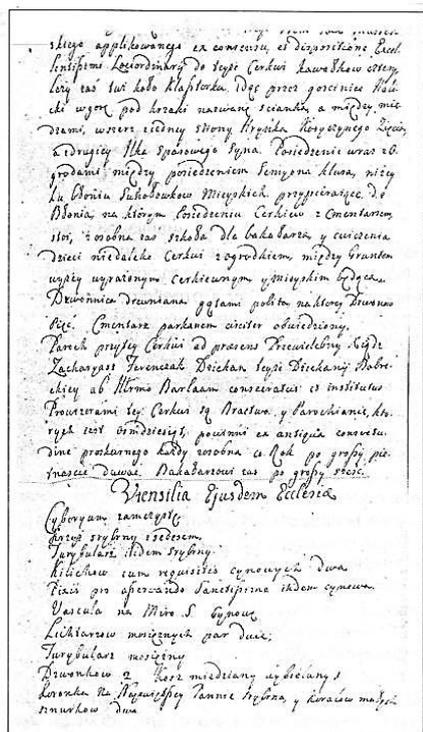 skiego applikowanego ex consensu, et dispositione Excel
lentissimi Loci ordinarij do teysi Cerkwi kawałkow cztery
leży zas tuż koło klasztorka. idąc przez gościniec Hali
cki w gorę pod krzaki nazwane scianka, a między mie
dzami, wszerz z iedney strony Hryszka
a z drugiey Ilka Spasowego Syna. Posiedzenie wraz z O
grodami między posiedzeniem Semyona niżey
ku błoniu Sukobowkow Mieyskich przypieraiące do
Błonia, na ktorym Posiedzeniu Cerkiew z Cmentarzem
stoi, zosobna zas szkoła dla bakałarza y cwiczenia
dzieci niedaleko Cerkwi z ogrodkiem, między Gruntem
wyżey wyrażonym Cerkiewnym y mieyskim będąca.
Dzwonnica drewniana gątami pobita na ktorey Dzwonow
Pięć. Cmentarz parkanem circiter obwiedziony.
Paroch przy tey Cerkwi ad praesens Przewielebny Xiądz
Zacharyasz Jeremczak Dziekan teysi Dziekanij
ab Illrmo Barlaam consecratus et institutus
Prowizorami tey Cerkwi są Bractwo, y Parochianie, kto
rych iest ośmdziesiąt, powinni ex antiqua consvetu
dine proskurnego każdy zosobna co Rok po groszy pie
tnascie dawać. Bakałarzowi zas po groszy szesc.
Utensilia Ejusdem Ecclesiae
Cyboryum zamczyste
Krzyż srybrny z
Turybularz itidem srybrny.
Kilichow cum requisitis cynowych dwa
Puszka pro asservando Sanctissimo itidem cynowa.
Vascula na Miro S. Cynowe
Lichtarzow mosiężnych par dwie,
Turybularz mosiężny
Dzwonkow 2 Kosz miedziany wybielany 1
Koronka na Nayświętszey Pannie srybrna, y korałow małych
sznurkow dwa